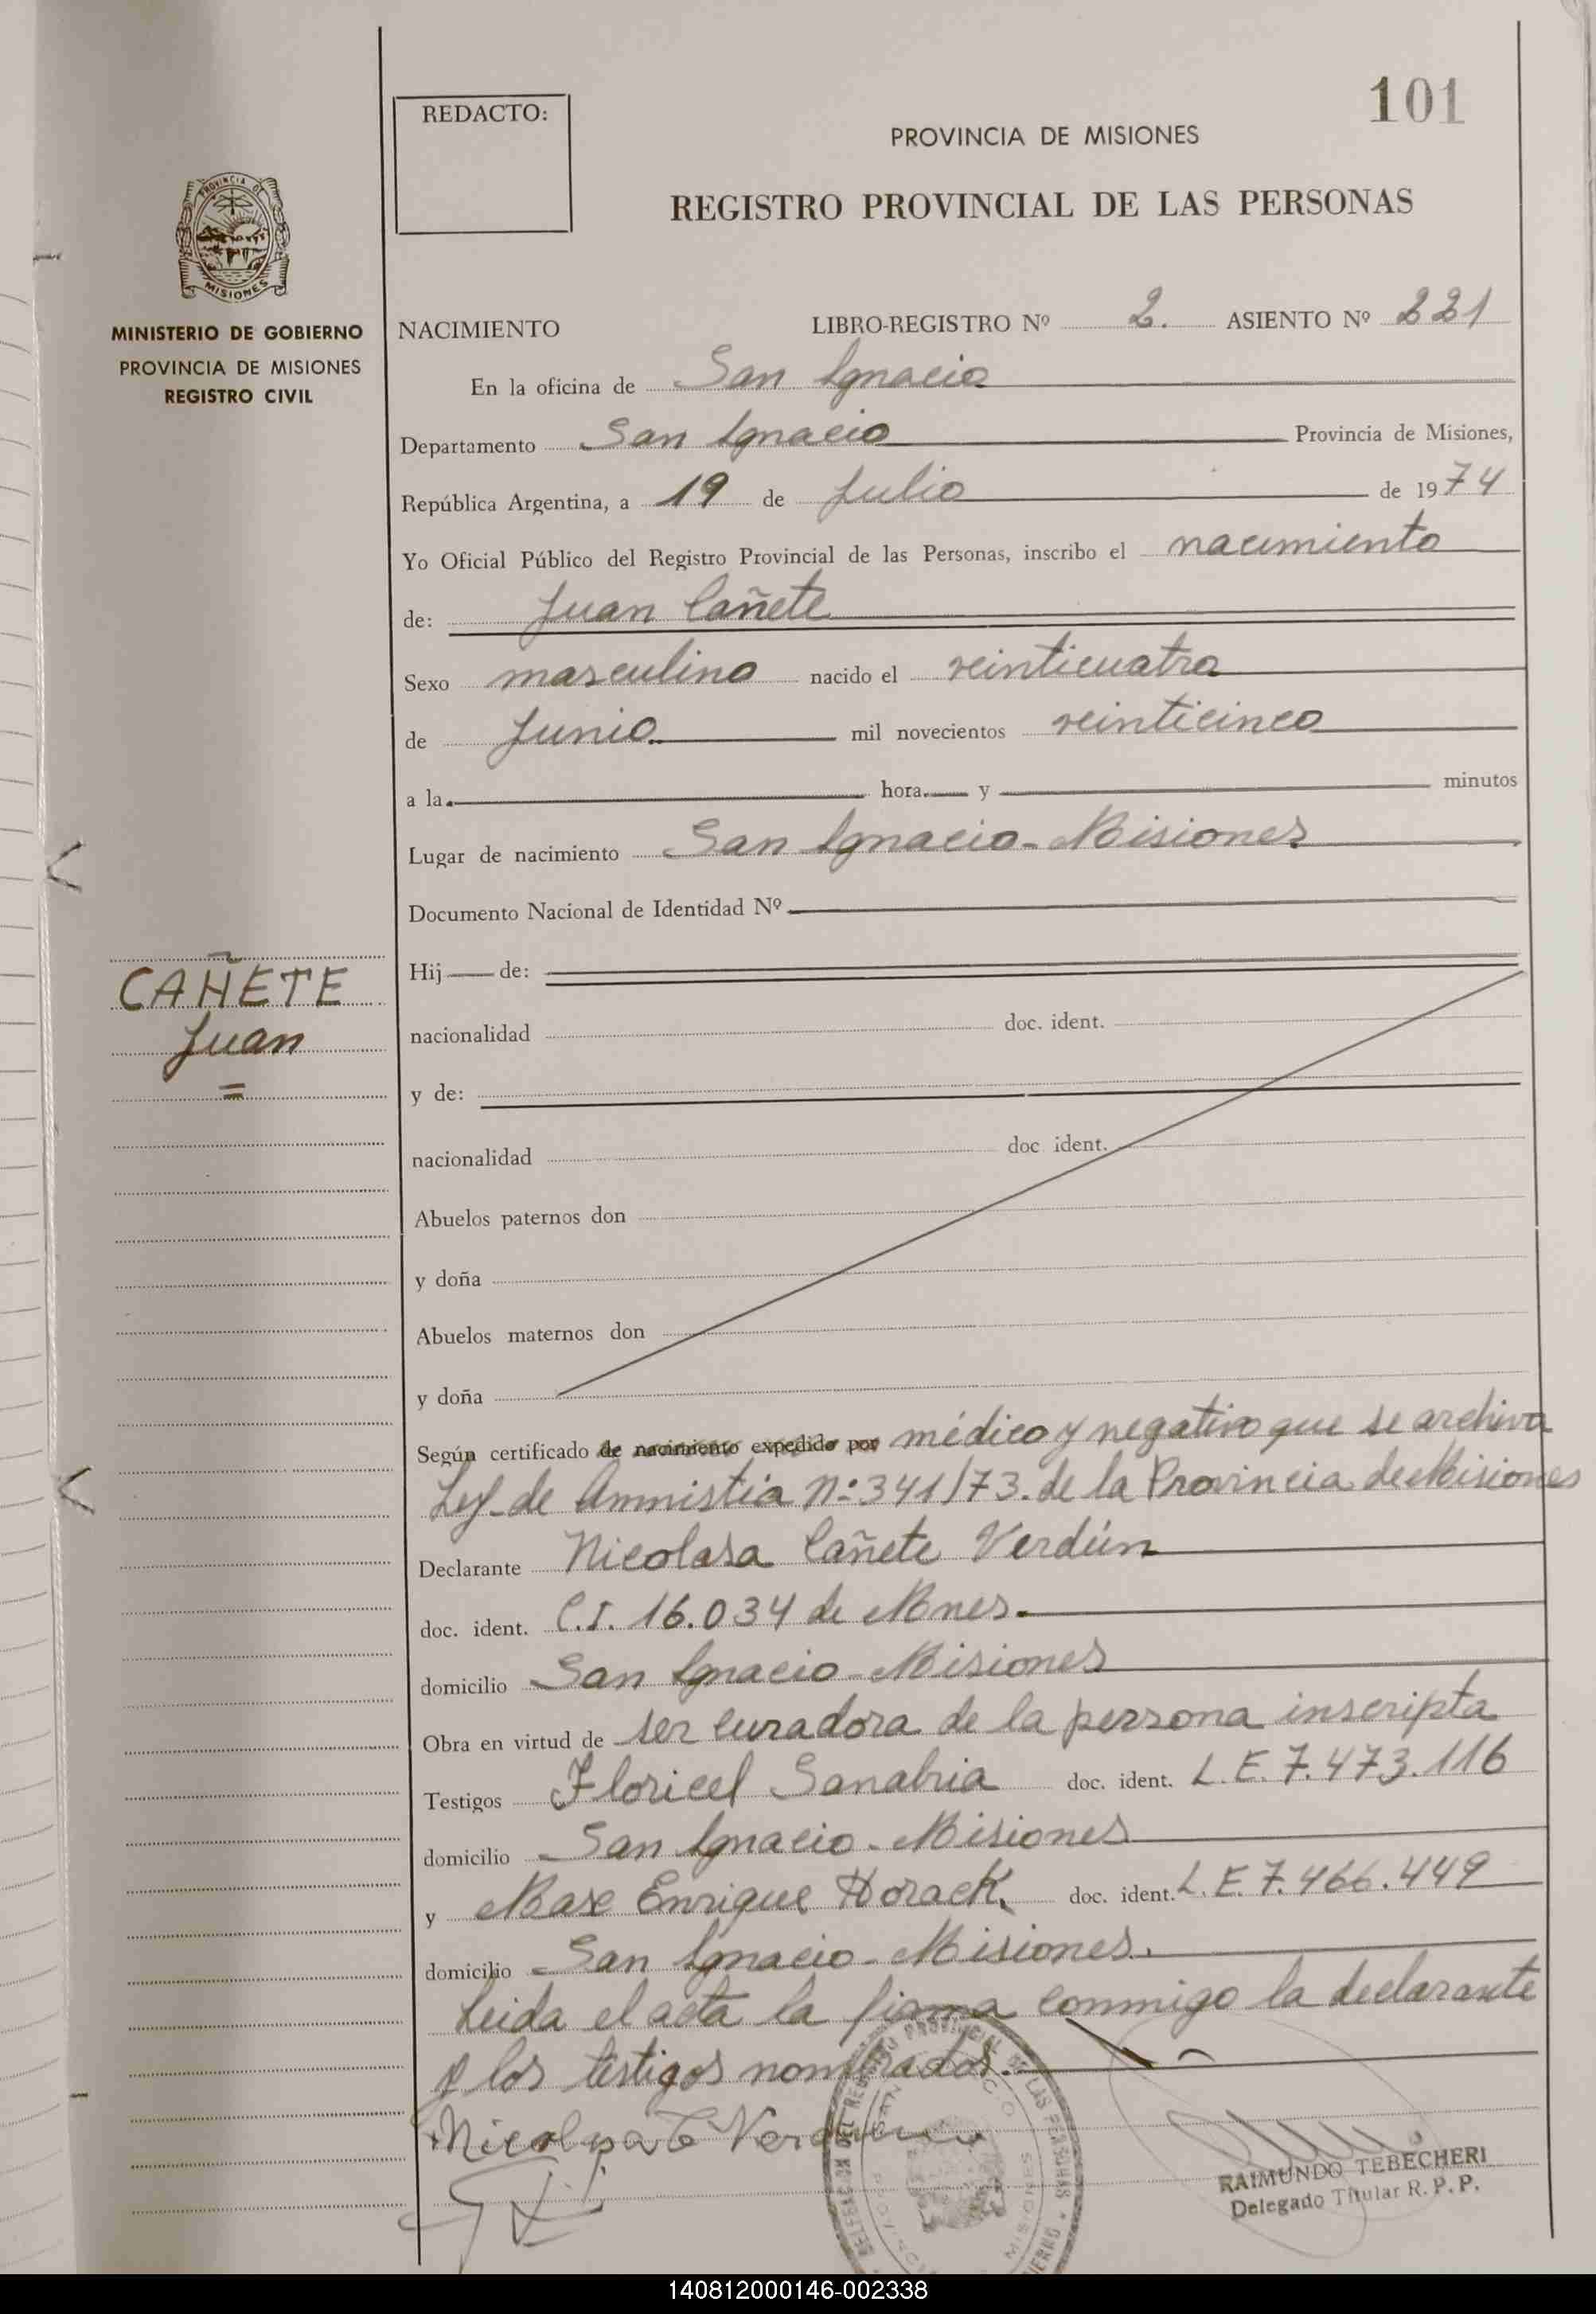 101
REDACTO:
PROVINCIA DE MISIONES
REGISTRO PROVINCIAL DE LAS PERSONAS
PROVINCIA DE
MISIONES
MINISTERIO DE GOBIERNO
PROVINCIA DE MISIONES
REGISTRO CIVIL
NACIMIENTO LIBRO-REGISTRO Nº 2. ASIENTO Nº 221
En la oficina de San Ignacio
Departamento San Ignacio Provincia de Misiones,
República Argentina, a 19 de Julio de 1974
Yo Oficial Público del Registro Provincial de las Personas, inscribo el nacimiento
de: Juan Cañete
Sexo masculino nacido el veinticuatro
de Junio mil novecientos veinticinco
a la hora y minutos
Lugar de nacimiento San Ignacio - Misiones
Documento Nacional de Identidad Nº
CAÑETE
Juan
=
Hij de:
nacionalidad doc. ident.
y de:
nacionalidad doc ident.
Abuelos paternos don
y doña
Abuelos maternos don
y doña
Según certificado de nacimiento expedido por médico y negativo que se archiva
Ley de Amnistía nº 341/73. de la Provincia de Misiones
Declarante Nicolasa Cañete Verdún
doc. ident. C.I. 16.034 de Mnes.
domicilio San Ignacio - Misiones
Obra en virtud de ser curadora de la persona inscripta
Testigos Floricel Sanabria doc. ident. L.E. 7.473.116
domicilio San Ignacio - Misiones
y Max Enrique Horack, doc. ident. L.E. 7.466.449
domicilio San Ignacio - Misiones.
Leida el acta la firma conmigo la declarante
y los testigos nombrados.
RAIMUNDO TEBECHERI
Delegado Titular R. P. P.
140812000146-002338